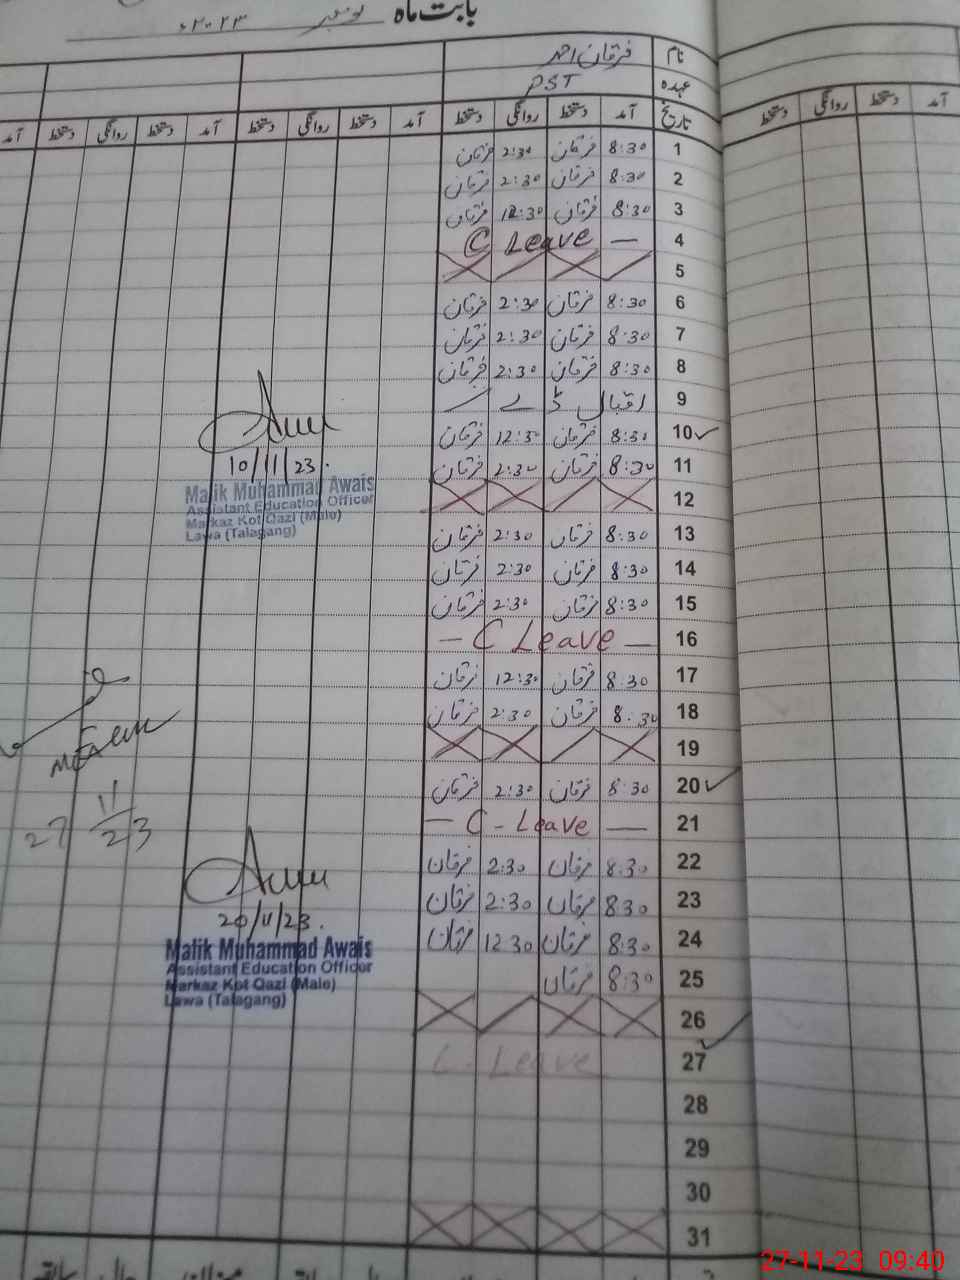 بابت ماہ نومبر ۲۰۲۳ء
نام فرقان احمد
عہدہ PST
تاریخ آمد دستخط روانگی دستخط آمد دستخط روانگی دستخط آمد دستخط روانگی دستخط آمد
آمد دستخط روانگی دستخط
1 8:30 فرقان 2:30 فرقان
2 8:30 فرقان 2:30 فرقان
3 8:30 فرقان 12:30 فرقان
4 C Leave —
5
6 8:30 فرقان 2:30 فرقان
7 8:30 فرقان 2:30 فرقان
8 8:30 فرقان 2:30 فرقان
9 اقبال ڈے
10 ✓ 8:30 فرقان 12:30 فرقان
11 8:30 فرقان 2:30 فرقان
12
13 8:30 فرقان 2:30 فرقان
14 8:30 فرقان 2:30 فرقان
15 8:30 فرقان 2:30 فرقان
16 — C Leave —
17 8:30 فرقان 12:30 فرقان
18 8:30 فرقان 2:30 فرقان
19
20 ✓ 8:30 فرقان 2:30 فرقان
21 — C - Leave —
22 8:30 فرقان 2:30 فرقان
23 8 30 فرقان 2:30 فرقان
24 8:30 فرقان 12 30 فرقان
25 8:30 فرقان
26
27 C - Leave
28
29
30
31
10/11/23.
Malik Muhammad Awais
Assistant Education Officer
Markaz Kot Qazi (Male)
Lawa (Talagang)
27 11/23
20/11/23.
Malik Muhammad Awais
Assistant Education Officer
Markaz Kot Qazi (Male)
Lawa (Talagang)
27-11-23 09:40